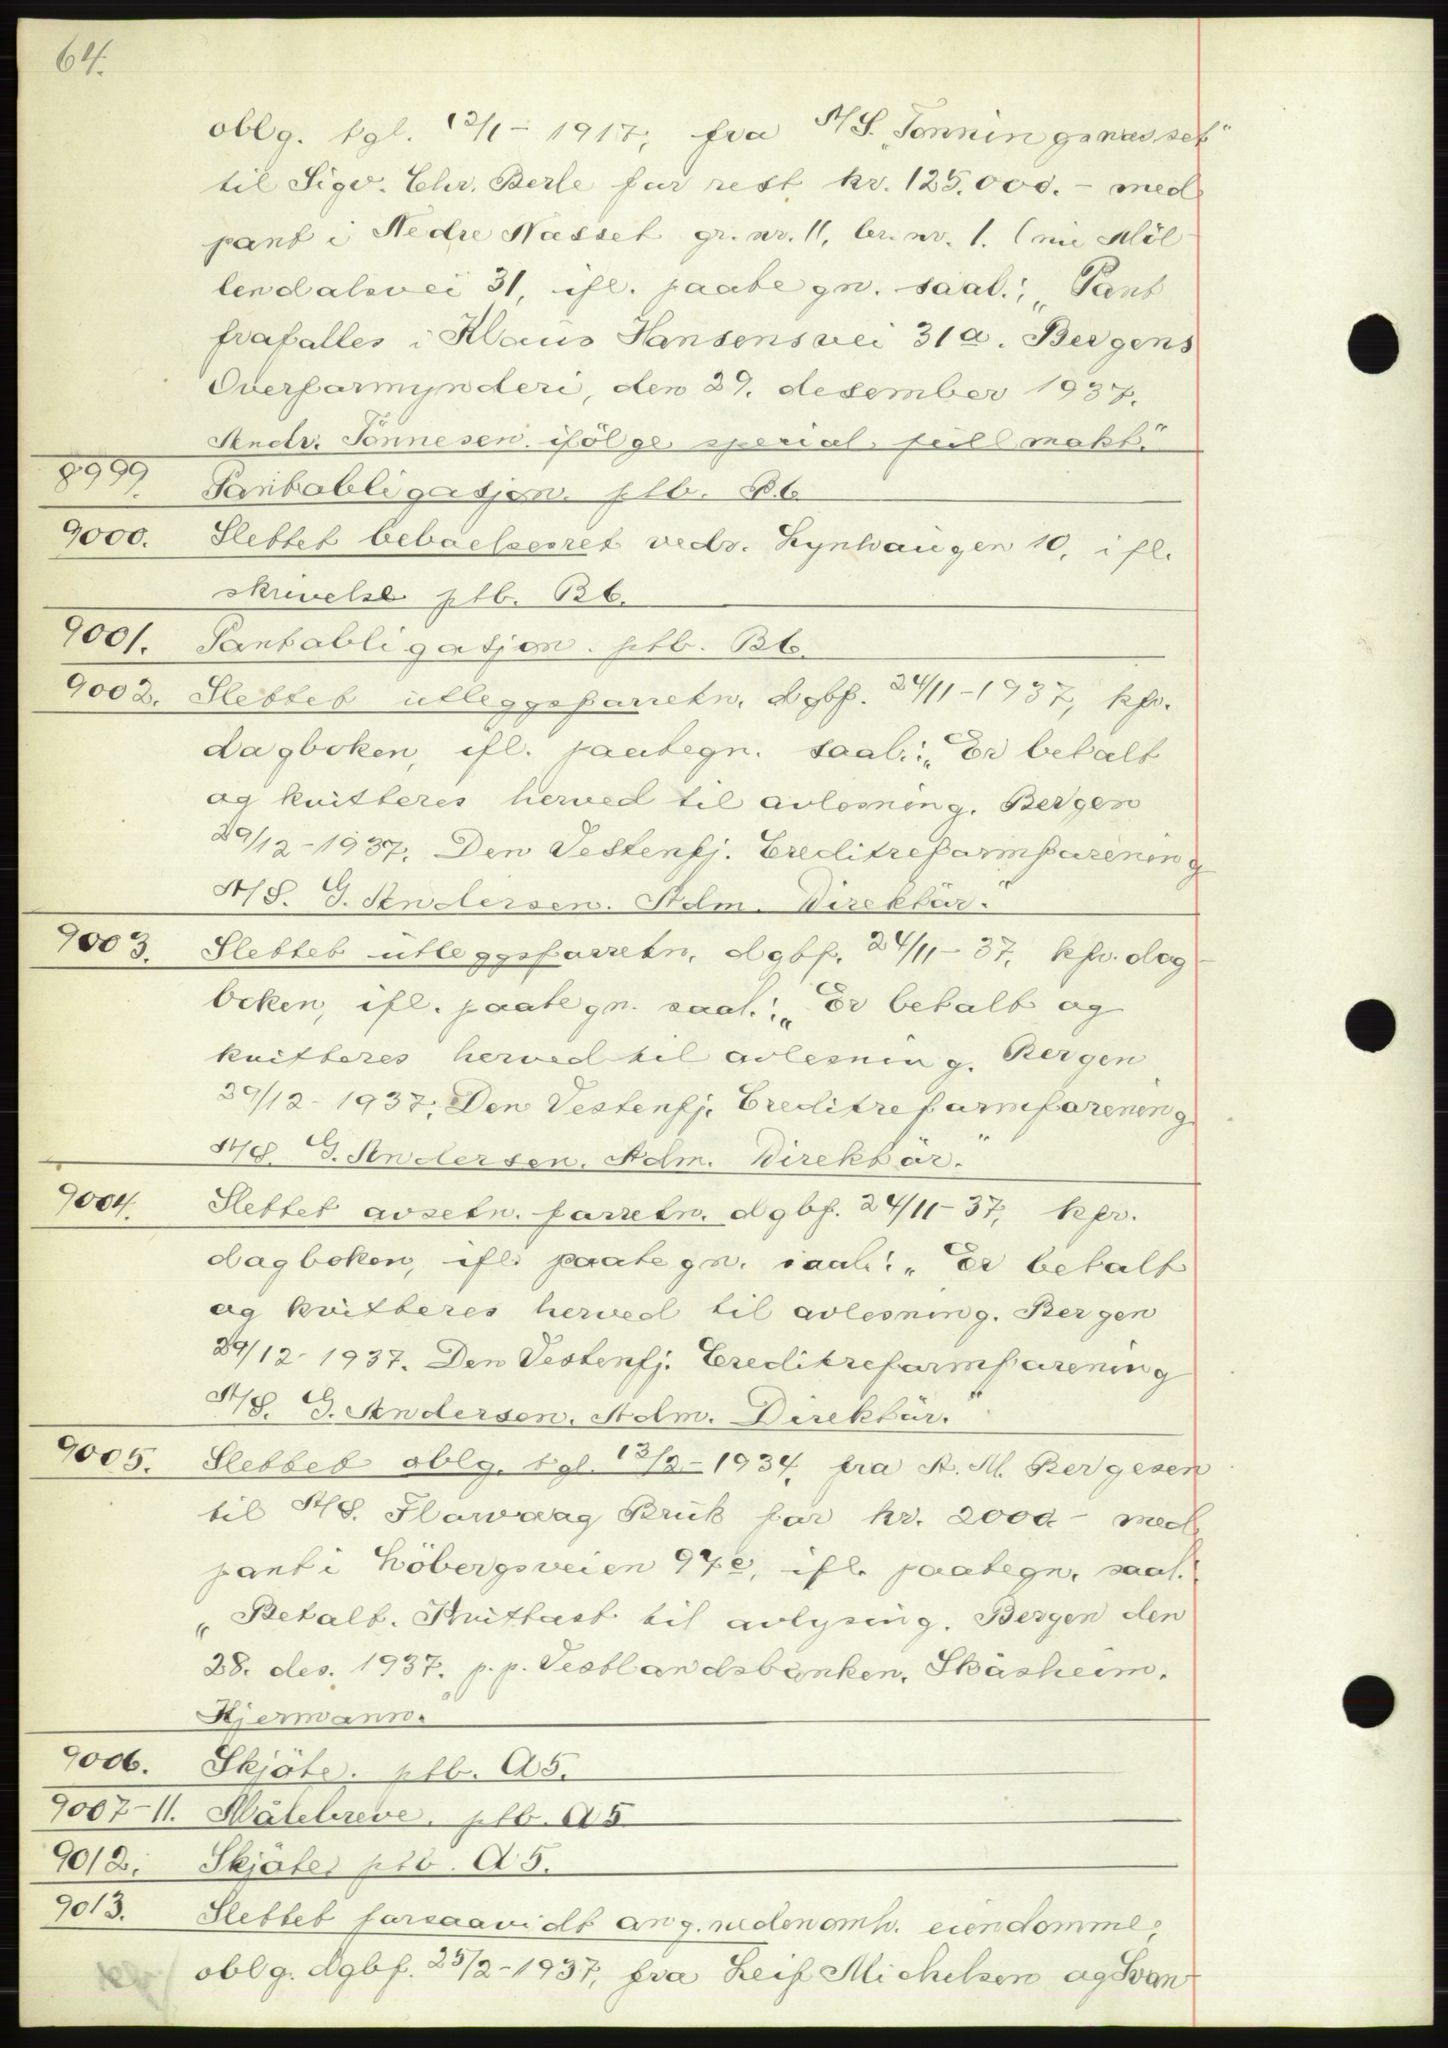 64.
oblg. tgl. 12/1 - 1917, fra A/S. „Tonningsnesset"
til Sigv. Chr. Berle for rest kr. 125.000.- med
pant i Nedre Nasset gr. nr. 11, br. nr. 1. (nu Möl-
lendalsvei 31, ifl. paategn. saal.: „Pant
frafalles i Klaus Hansensvei 31a. Bergens
Overformynderi, den 29. desember 1937.
Andr. Tönnesen. ifölge spesial-fullmakt."
8999. Pantobligasjon. ptb. B6
9000. Slettet beboelsesret vedr. Lynhaugen 10, ifl.
skrivelse ptb. B6.
9001. Pantobligasjon. ptb. B6.
9002. Slettet utleggsforretn. dgbf. 24/11-1937, kfr.
dagboken, ifl. paategn. saal.: „Er betalt
og kvitteres herved til avlesning. Bergen
29/12-1937. Den Vestenfj. Creditreformforening
A/S. G. Andersen. Adm. Direktör."
9003. Slettet utleggsforretn. dgbf. 24/11-37, kfr. dag-
boken, ifl. paategn. saal.: „Er betalt og
kvitteres herved til avlesning. Bergen
29/12-1937. Den Vestenfj. Creditreformforening
A/S. G. Andersen. Adm. Direktör."
9004. Slettet avsetn. forretn. dgbf. 24/11-37, kfr.
dagboken, ifl. paategn. saal.: „Er betalt
og kvitteres herved til avlesning. Bergen
29/12-1937. Den Vestenfj. Creditreformforening
A/S. G. Andersen. Adm. Direktör."
9005. Slettet oblg. tgl. 13/2-1934, fra A. M. Bergesen
til A/S. Flarvaag Bruk for kr. 2000.- med
pant i Löbergsveien 97c, ifl. paategn. saal.:
„Betalt. Kvittast til avlysing. Bergen den
28. des. 1937. p.p. Vestlandsbanken. Skåsheim.
Hjermann."
9006. Skjöte. ptb. A5.
9007-11. Målebreve. ptb. A5
9012. Skjöte, ptb. A5.
9013. Slettet forsaavidt ang. nedenomh. eiendomme,
oblg. dgbf. 25/2-1937, fra Leif Michelsen og Svan-